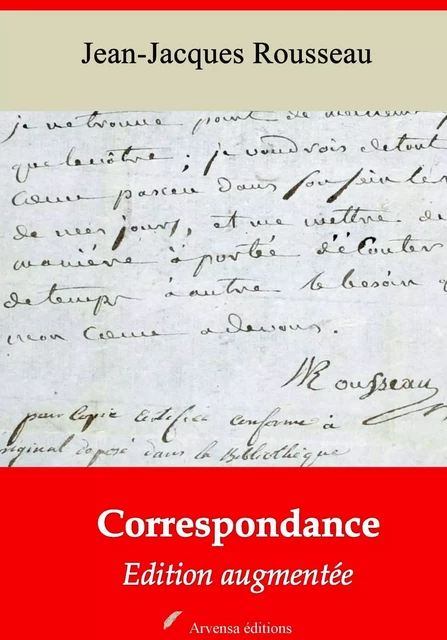 Jean-Jacques Rousseau
je ne trouve point de meilleur
que le nôtre ; je voudrois de tout
cœur passer dans son sein le
de mes jours, et me mettre de
maniére à portée d'écouter
de temps à autre le besoin q
mon cœur a de vous.
Rousseau
pour Copie certifiée conforme à
original déposé dans la Bibliothèque
Correspondance
Edition augmentée
Arvensa éditions